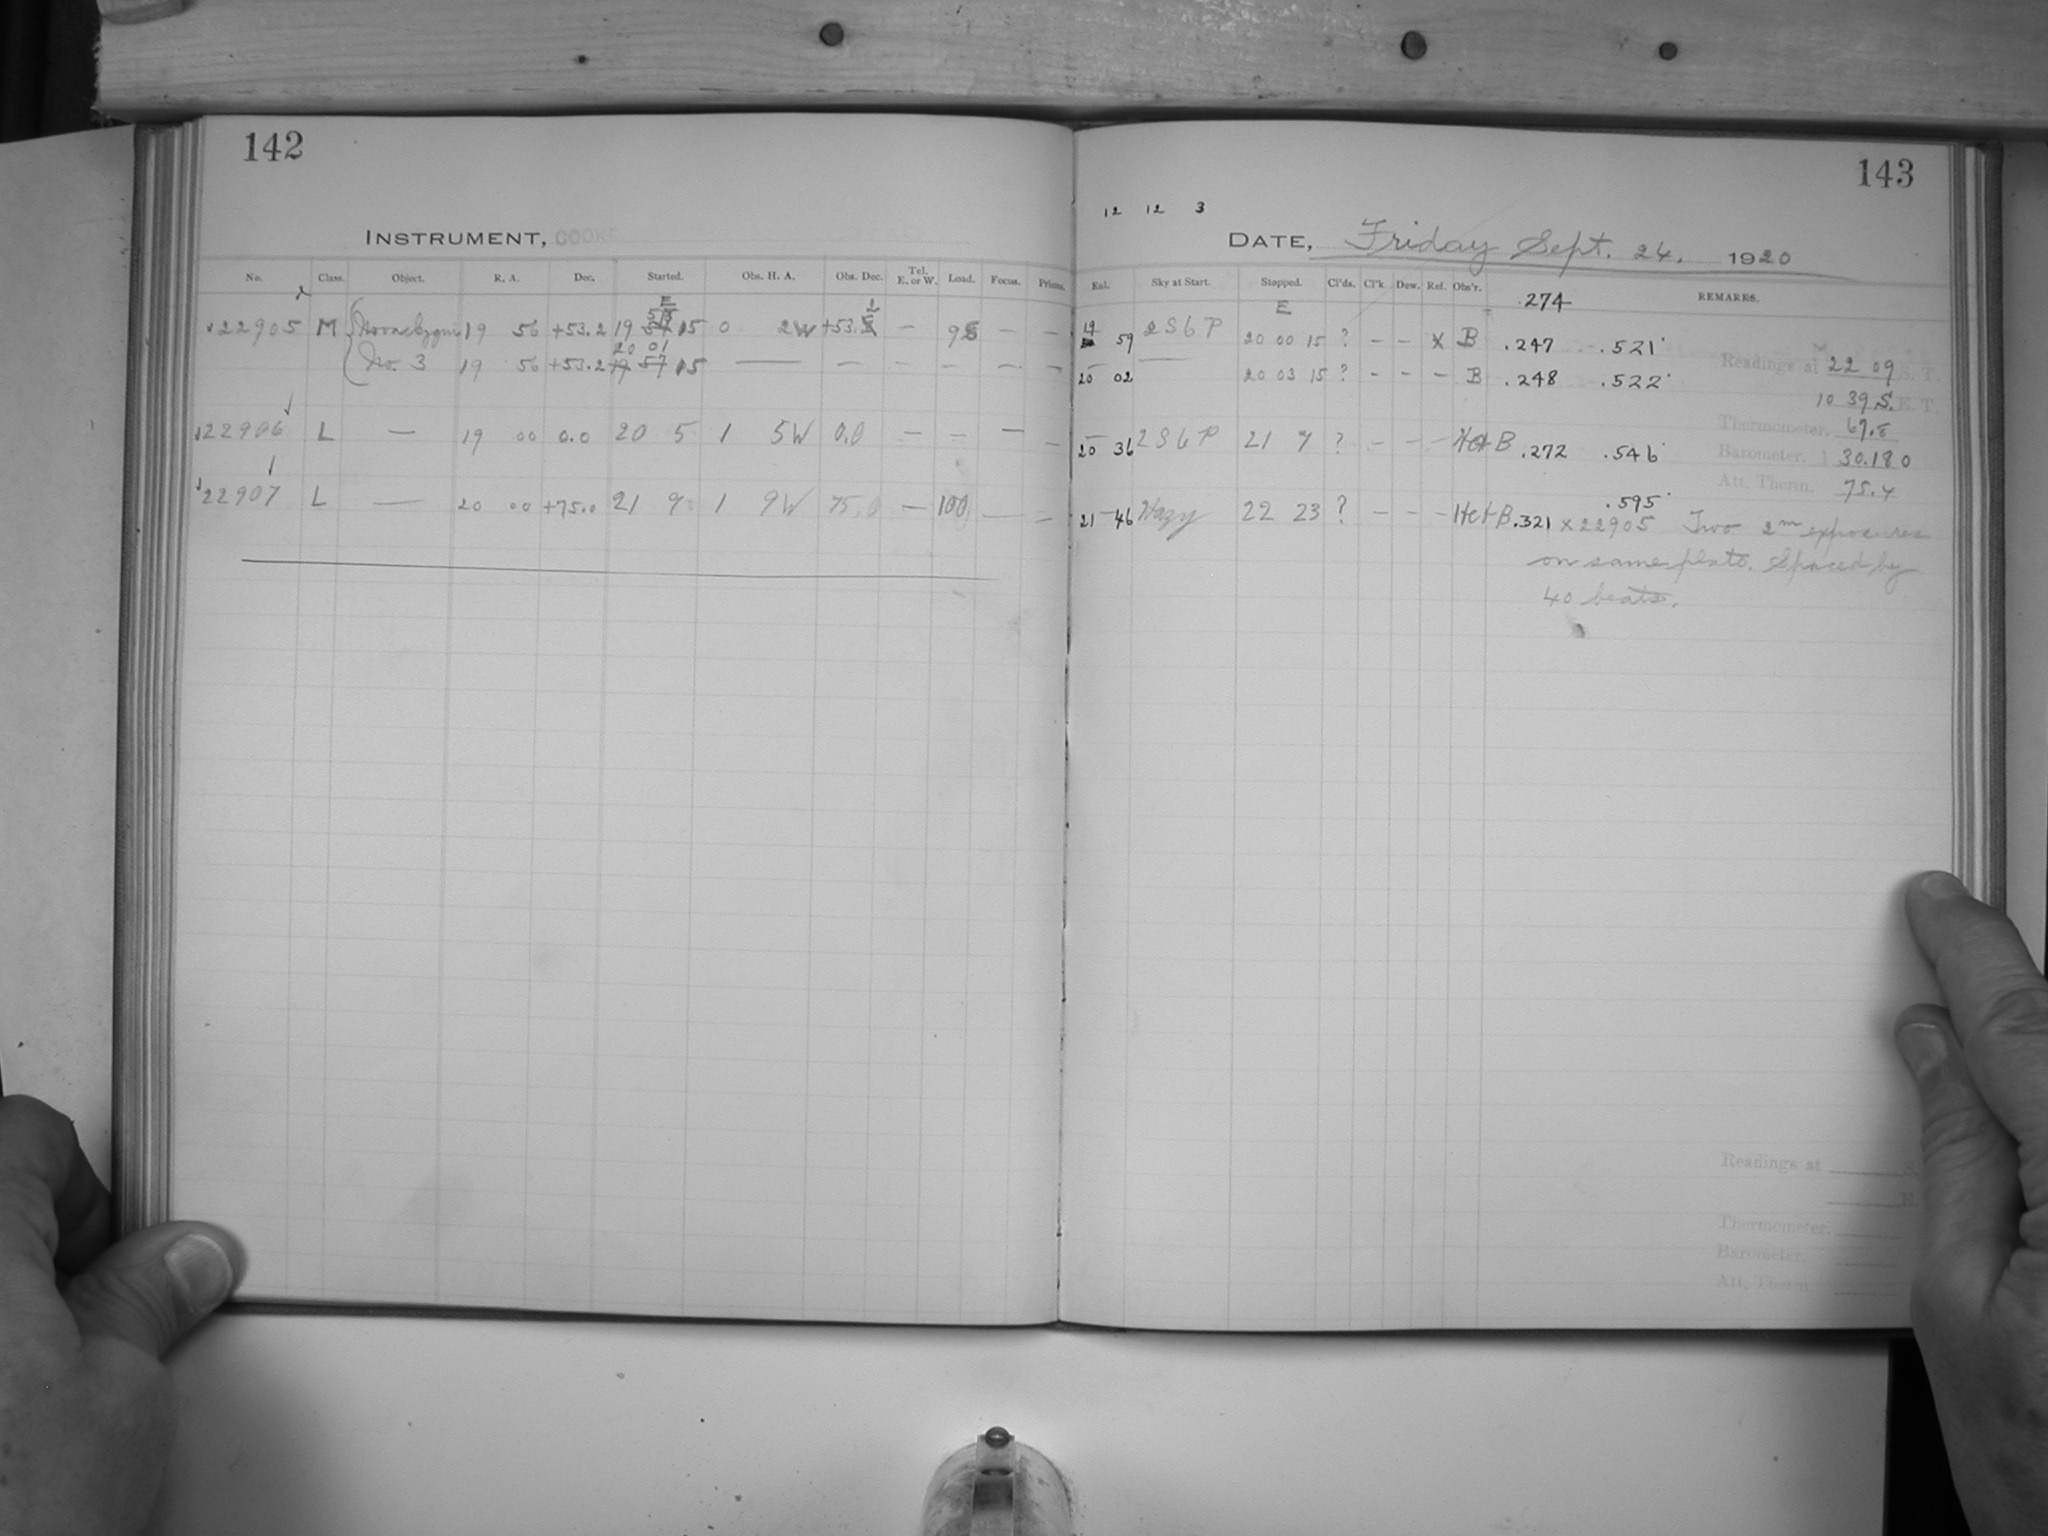 142
INSTRUMENT, COOKE
No. Class. Object. R. A. Dec. Started. Obs. H. A. Obs. Dec. Tel. E. or W. Load. Focus. Prisms.
E
22905 M Nova Cygni 19 56 +53.2 19 15 0 2W +53. — 95 — —
20 01
No. 3 19 56 +53.2 19 57 15 — — — — — —
22906 L — 19 00 0.0 20 5 1 5W 0.0 — — — —
22907 L — 20 00 +75.0 21 9 1 9W 75.0 — 100 — —
143
12 12 3
DATE, Friday Sept. 24. 1920
Ext. Sky at Start. Stopped. Cl'ds. Cl'k. Dew. Ref. Obs'r. REMARKS.
E .274
19 59 2S6P 20 00 15 ? — — X B .247 .521
20 02 — 20 03 15 ? — — — B .248 .522
20 36 2S6P 21 7 ? — — — H+B .272 .546
.595
21 46 Hazy 22 23 ? — — — H+B .321 X 22905 Two 2m exposures
on same plate. Spaced by
40 beats.
Readings at 22 09 S. T.
10 39 S. E. T.
Thermometer. 67.8
Barometer. 30.180
Att. Therm. 75.4
Readings at
Thermometer.
Barometer.
Att. Therm.